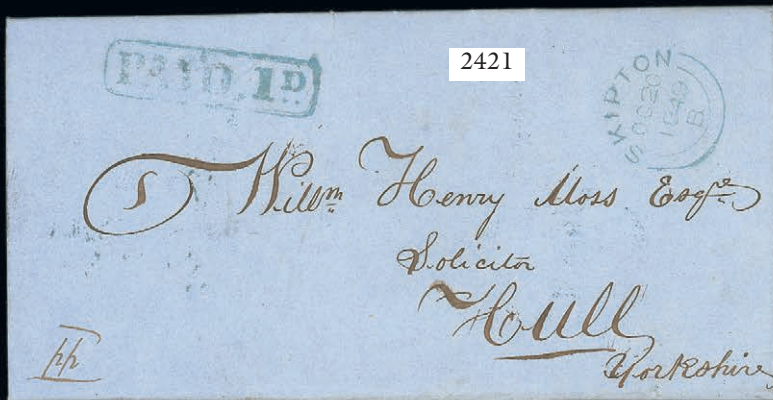 PAID. 1D.
2421
SKIPTON
OC 20
1849
B
1
Willm Henry Moss Esqre
Solicitor
Hull
Yorkshire
pp